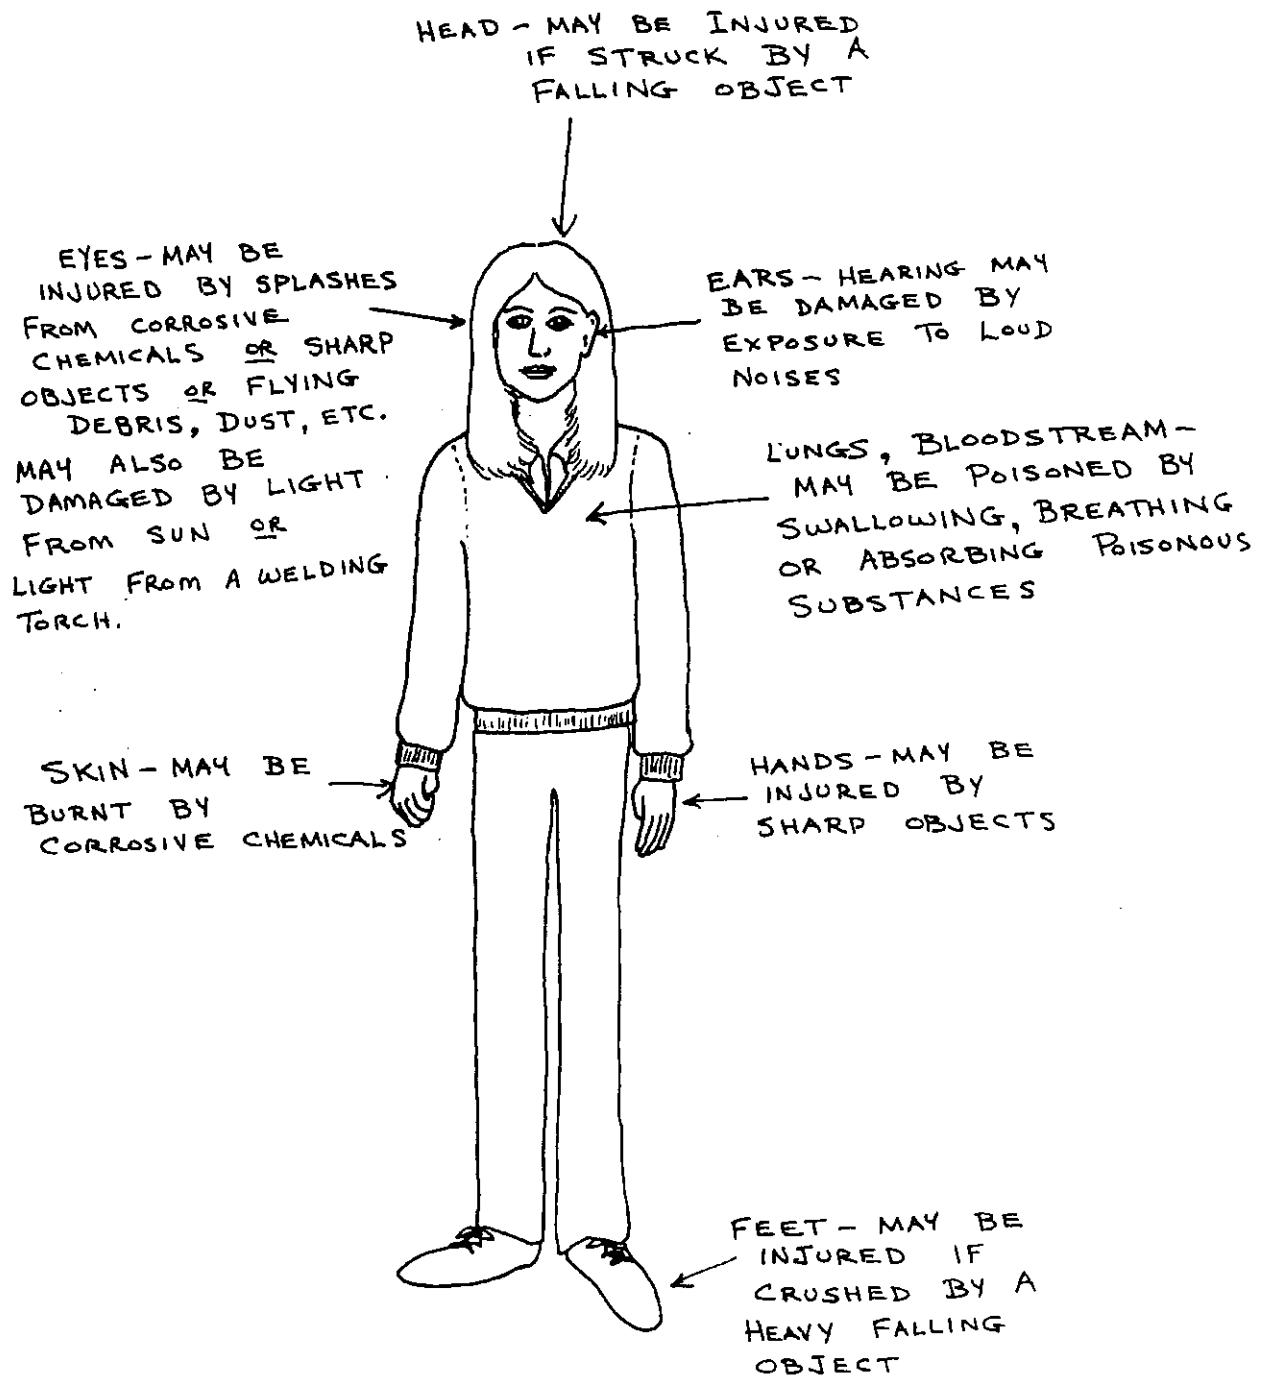 HEAD - MAY BE INJURED
IF STRUCK BY A
FALLING OBJECT
EYES - MAY BE
INJURED BY SPLASHES
FROM CORROSIVE
CHEMICALS OR SHARP
OBJECTS OR FLYING
DEBRIS, DUST, ETC.
MAY ALSO BE
DAMAGED BY LIGHT
FROM SUN OR
LIGHT FROM A WELDING
TORCH.
EARS - HEARING MAY
BE DAMAGED BY
EXPOSURE TO LOUD
NOISES
LUNGS, BLOODSTREAM -
MAY BE POISONED BY
SWALLOWING, BREATHING
OR ABSORBING POISONOUS
SUBSTANCES
SKIN - MAY BE
BURNT BY
CORROSIVE CHEMICALS
HANDS - MAY BE
INJURED BY
SHARP OBJECTS
FEET - MAY BE
INJURED IF
CRUSHED BY A
HEAVY FALLING
OBJECT